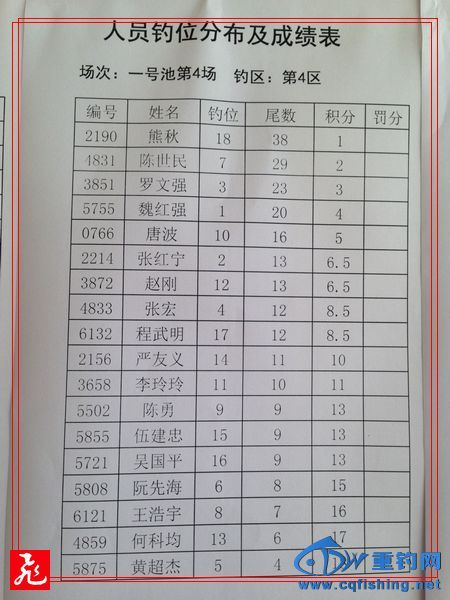 人员钓位分布及成绩表
场次：一号池第4场 钓区：第4区
编号 姓名 钓位 尾数 积分 罚分
2190 熊秋 18 38 1
4831 陈世民 7 29 2
3851 罗文强 3 23 3
5755 魏红强 1 20 4
0766 唐波 10 16 5
2214 张红宁 2 13 6.5
3872 赵刚 12 13 6.5
4833 张宏 4 12 8.5
6132 程武明 17 12 8.5
2156 严友义 14 11 10
3658 李玲玲 11 10 11
5502 陈勇 9 9 13
5855 伍建忠 15 9 13
5721 吴国平 16 9 13
5808 阮先海 6 8 15
6121 王浩宇 8 7 16
4859 何科均 13 6 17
5875 黄超杰 5 4
重钓网
www.cqfishing.net